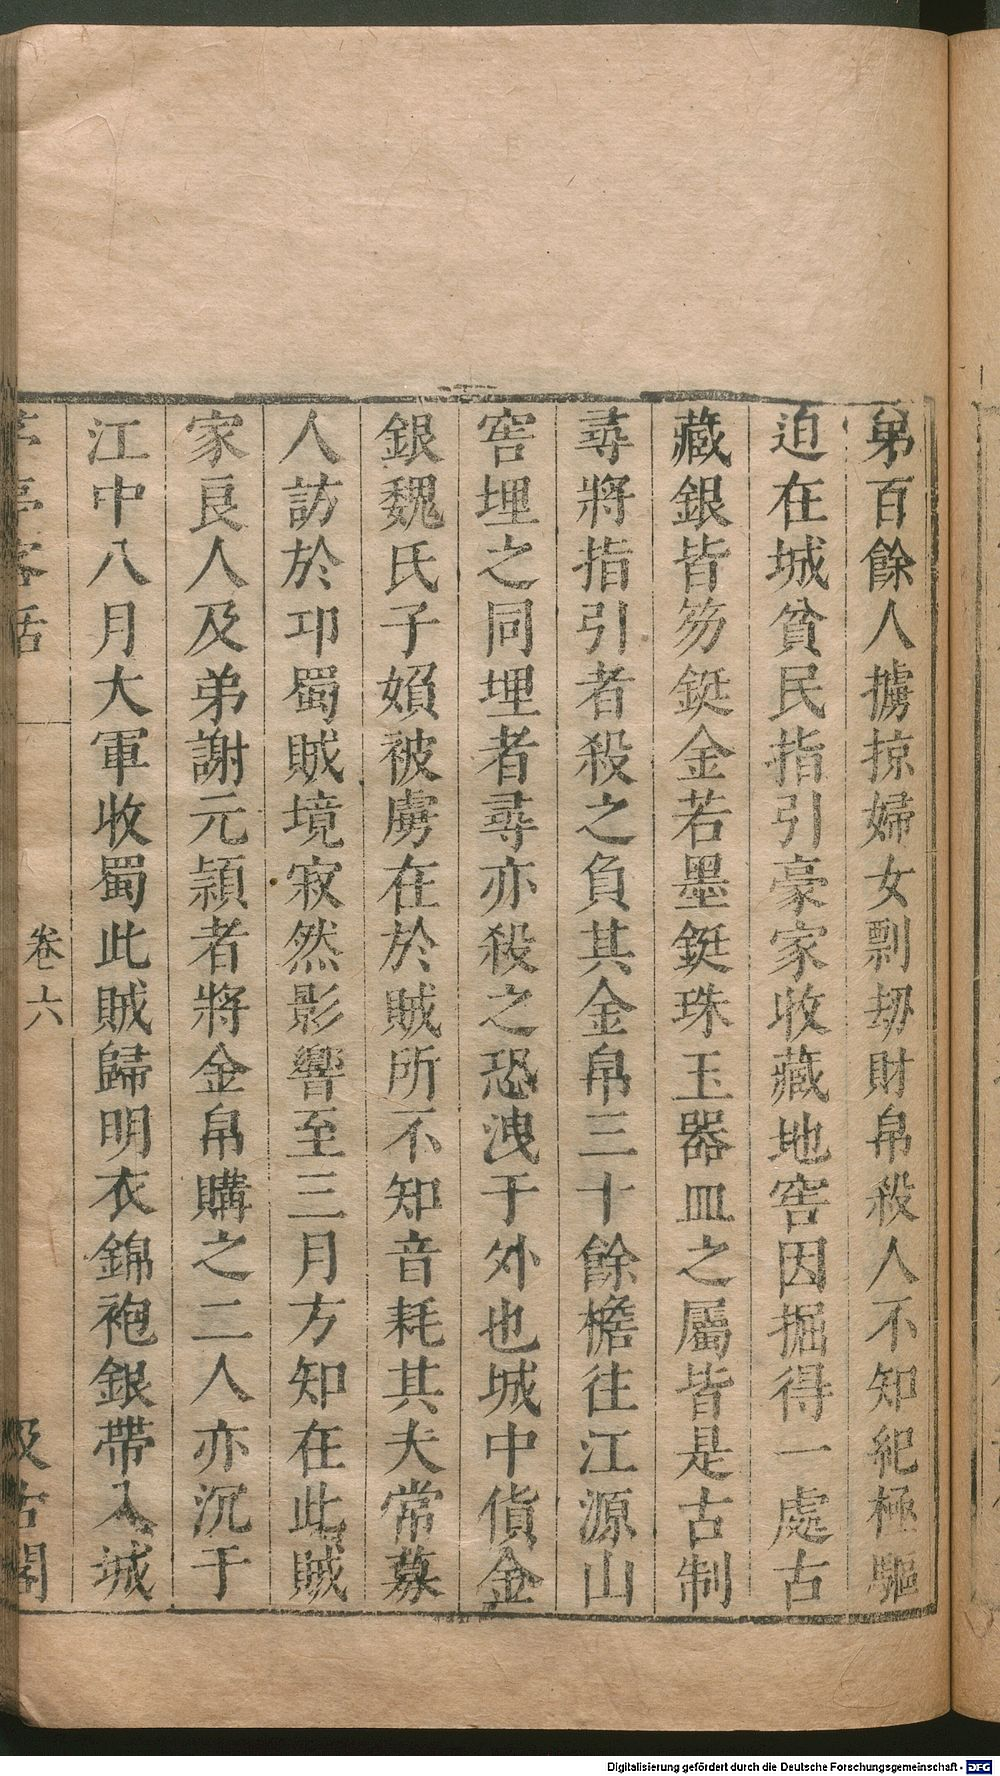 弟百餘人擄掠婦女剽刼財帛殺人不知紀極驅
迫在城貧民指引豪家收藏地窖因掘得一處古
藏銀皆笏鋌金若墨鋌珠玉器皿之屬皆是古制
尋將指引者殺之負其金帛三十餘檐往江源山
窖埋之同埋者尋亦殺之恐洩于外也城中貨金
銀魏氏子媍被虜在於賊所不知音耗其夫常募
人訪於卭蜀賊境寂然影響至三月方知在此賊
家良人及弟謝元頴者將金帛購之二人亦沉于
江中八月大軍收蜀此賊歸明衣錦袍銀帶入城
茅亭客話
卷六
汲古閣
Digitalisierung gefördert durch die Deutsche Forschungsgemeinschaft - DFG